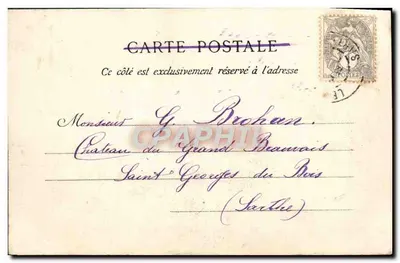 CARTE POSTALE
Ce côté est exclusivement réservé à l'adresse
Monsieur G. Brohan.
Chateau du Grand Beauvais
Saint Georges du Bois
(Sarthe)